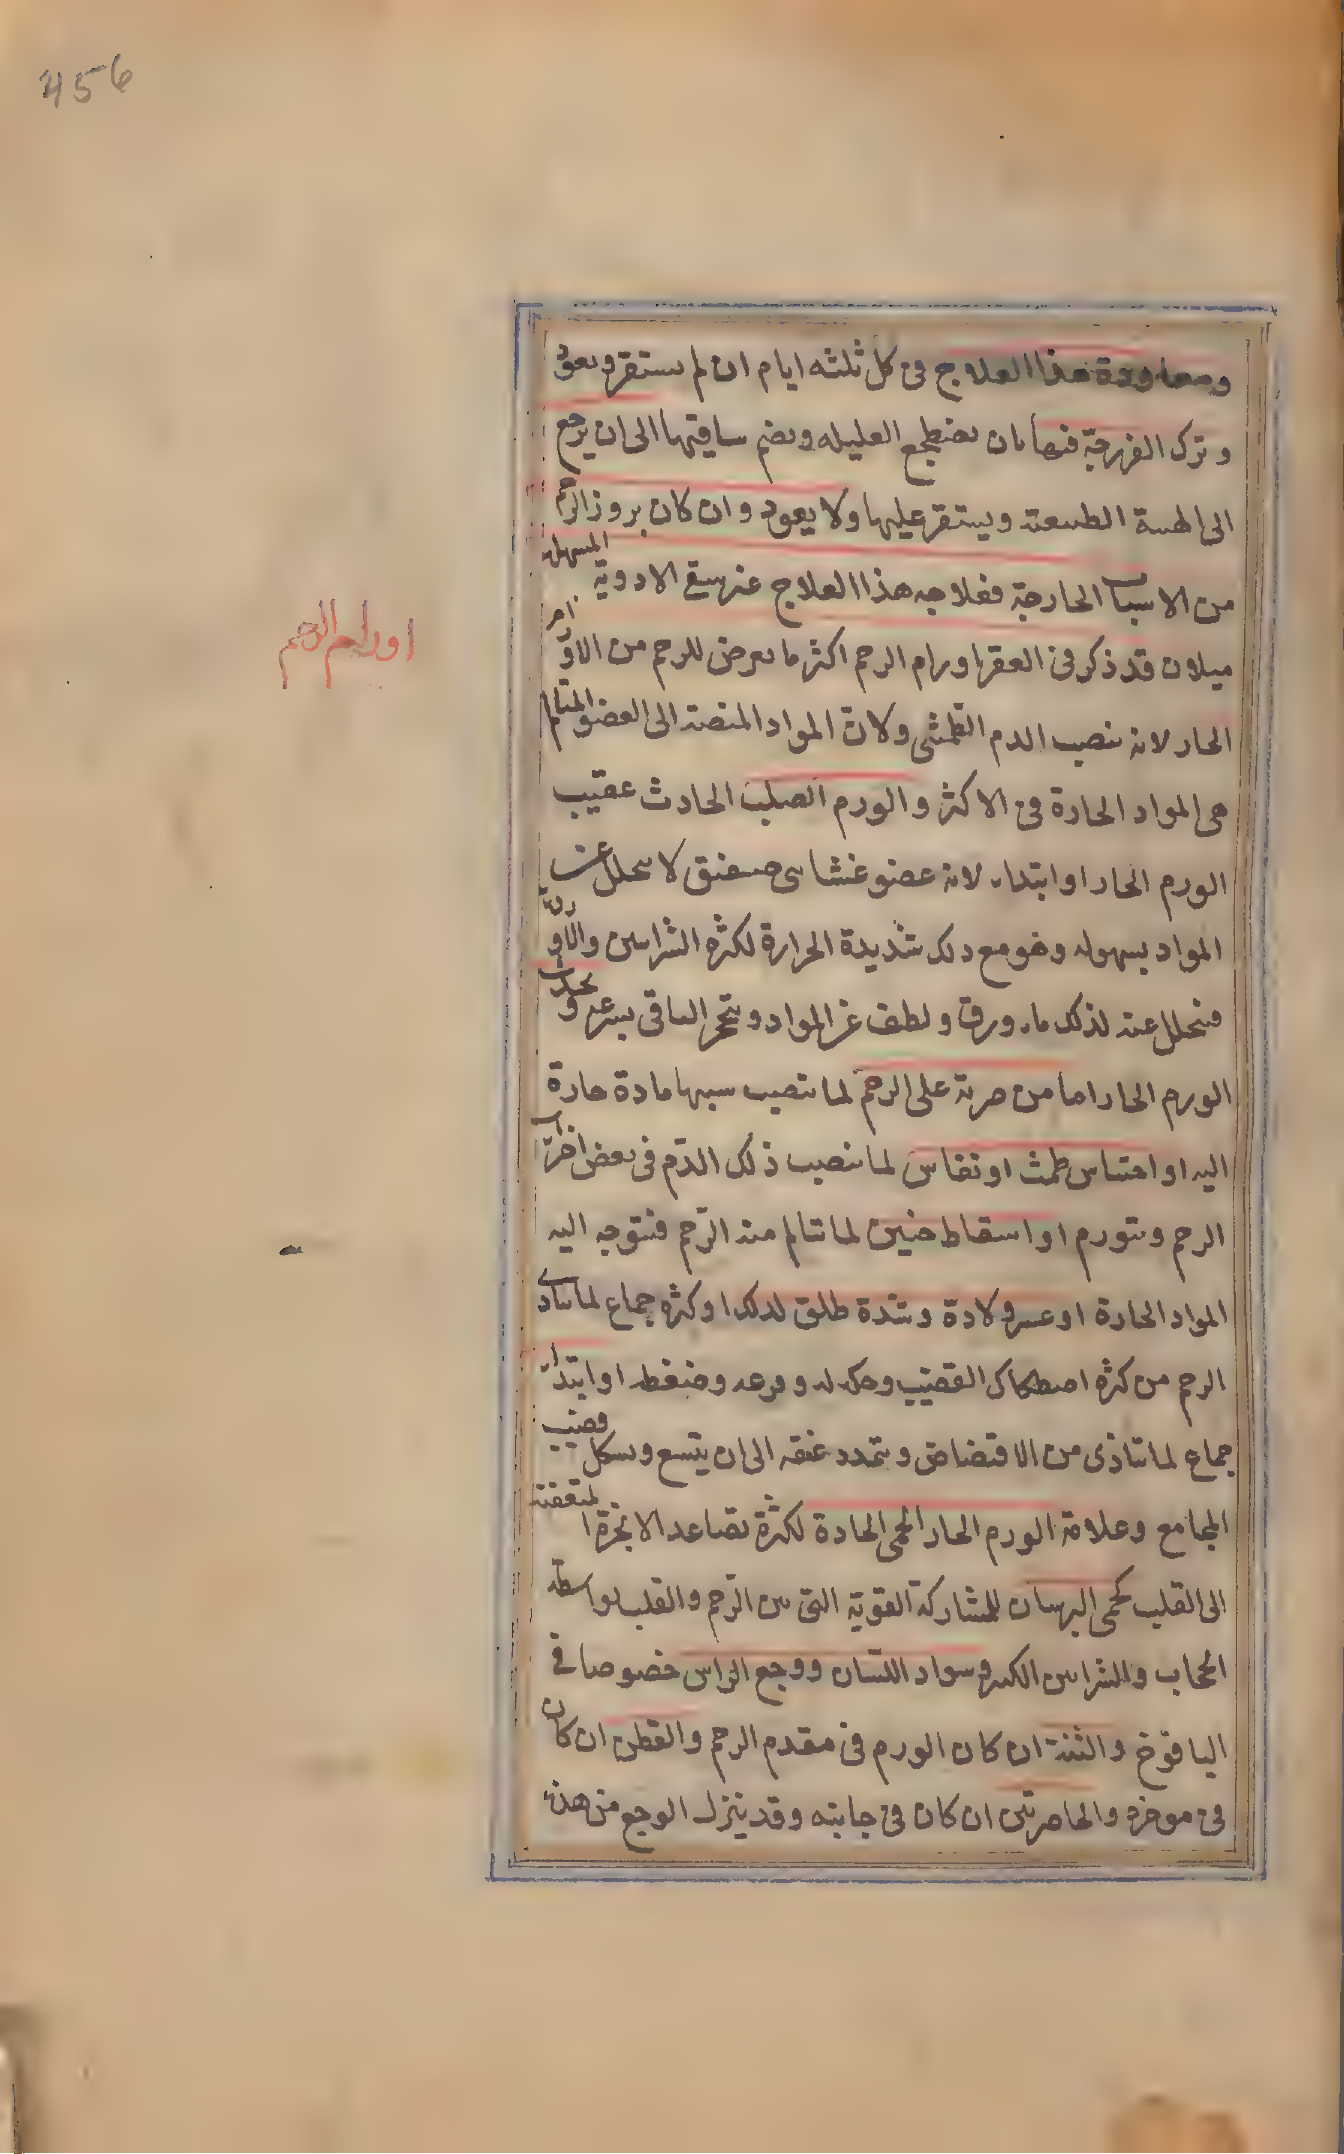 456
ومعاودة هذا العلاج فى كل ثلثه ايام ان لم يستقر ويعود
وترك الفرزجة فيها بان يضطجع العليله ويضم ساقيها الى ان يرجع
الى الهيئة الطبيعية ويستقر عليها ولا يعود وان كان بروز الرحم
من الاسباب الخارجة فعلاجه هذا العلاج غير سقى الادوية المسهله
ميلان قد ذكر فى العقر اورام الرحم اكثر ما يعرض للرحم من الاورام
اورام الرحم
الحار لانه ينصب الدم الطمثى ولان المواد المنصبة الى العضو المتالم
هى المواد الحارة فى الاكثر والورم الصلب الحادث عقيب
الورم الحار او ابتداء لانه عضو غشائى صفيق لا يتحلل عنه
المواد بسهوله وهو مع ذلك شديدة الحرارة لكثرة الشرايين والاوردة
فيتحلل عنه لذلك ما رق ولطف عن المواد ويتحجر الباقى بسرعه ويحدث
الورم الحار اما من ضربة على الرحم لما تنصب سببها مادة حارة
اليه او احتباس طمث او نفاس لما ينصب ذلك الدم فى بعض اجزاء
الرحم ويتورم او اسقاط جنين لما يتالم منه الرحم فيتوجه اليه
المواد الحارة او عسر ولادة وشدة طلق لذلك او كثرة جماع لما يتاذى
الرحم من كثرة اصطكاك القضيب وحكه له وقرعه وضغط او ابتداء
جماع لما تتاذى من الاقتضاض وتمدد عنقه الى ان يتسع وبشكل قضيب
المجامع وعلامة الورم الحار الحمى الحادة لكثرة تصاعد الابخرة المتعفنة
الى القلب كحمى البرسان للمشاركة القوية التى بين الرحم والقلب بواسطة
الحجاب والشرايين الكبيرة وسواد اللسان ووجع الراس خصوصا فى
اليافوخ والثنة ان كان الورم فى مقدم الرحم والقطن ان كان
فى موخره والخاصرتين ان كان فى جانبه وقد ينزل الوجع من هذه